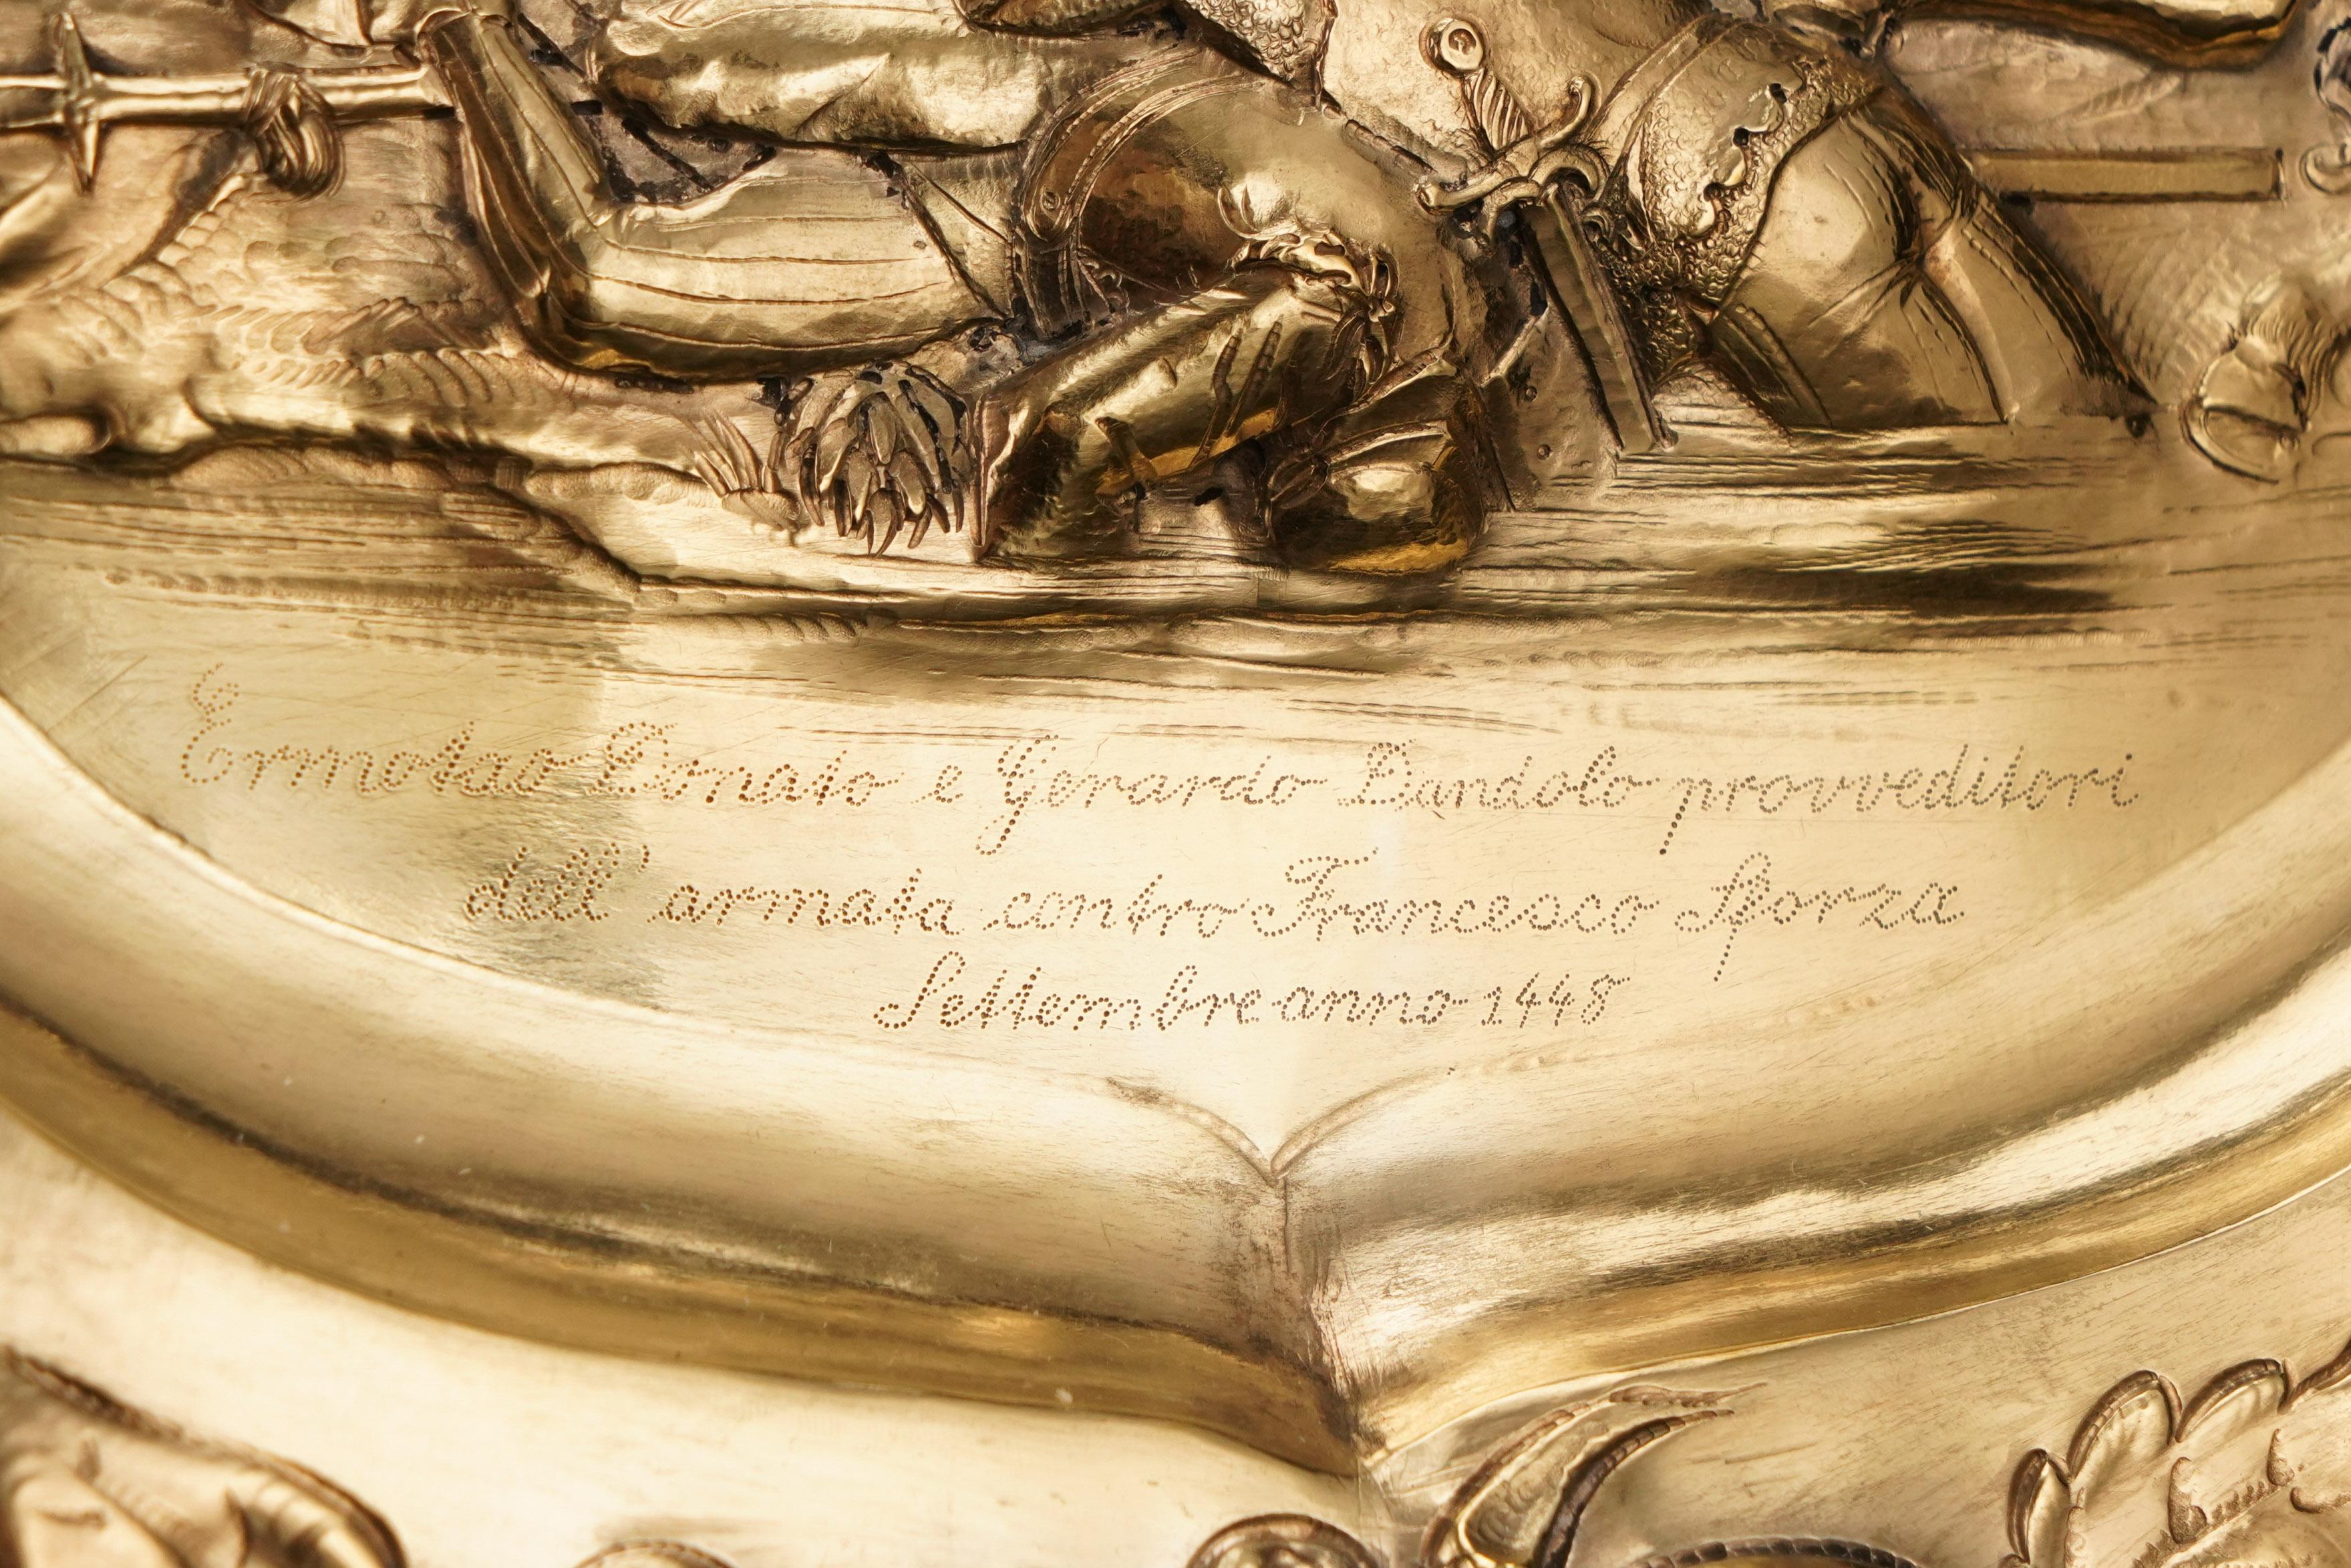 Ermolao Donato e Gerardo Dandolo provveditori
dell'armata contro Francesco Sforza
Settembre anno 1448